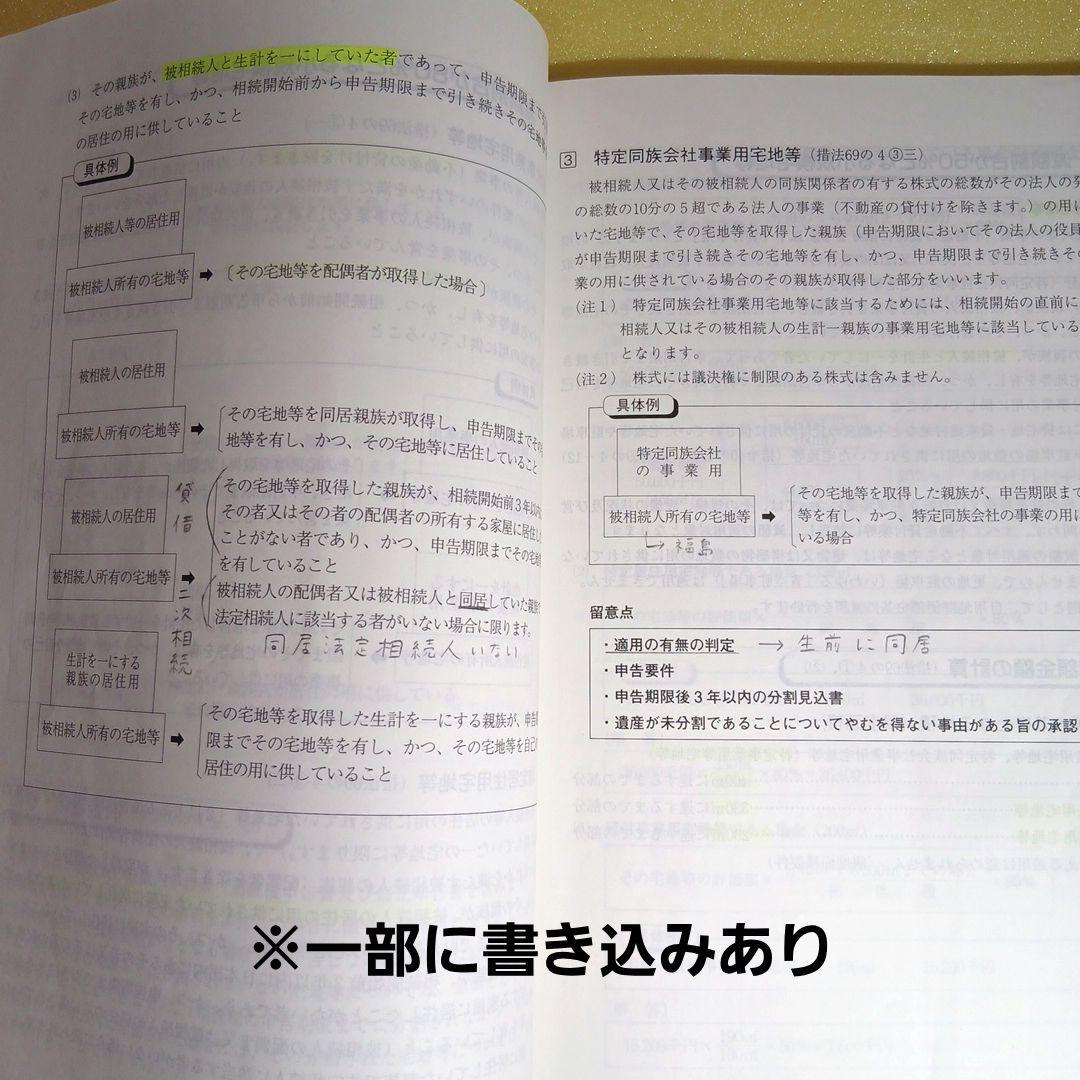 (3) その親族が、被相続人と生計を一にしていた者であって、申告期限まで
その宅地等を有し、かつ、相続開始前から申告期限まで引き続きその宅地
の居住の用に供していること
具体例
被相続人等の居住用
被相続人所有の宅地等
〔その宅地等を配偶者が取得した場合〕
被相続人の居住用
被相続人所有の宅地等
その宅地等を同居親族が取得し、申告期限までその
地等を有し、かつ、その宅地等に居住していること
被相続人の居住用
被相続人所有の宅地等
貸借
二次相続
その宅地等を取得した親族が、相続開始前3年以内
その者又はその者の配偶者の所有する家屋に居住し
ことがない者であり、かつ、申告期限までその宅地
を有していること
被相続人の配偶者又は被相続人と同居していた親族
法定相続人に該当する者がいない場合に限ります。
同居法定相続人いない
生計を一にする
親族の居住用
被相続人所有の宅地等
その宅地等を取得した生計を一にする親族が、申告
限までその宅地等を有し、かつ、その宅地等を自己
居住の用に供していること
3 特定同族会社事業用宅地等(措法69の4③三)
被相続人又はその被相続人の同族関係者の有する株式の総数がその法人の発
の総数の10分の5超である法人の事業(不動産の貸付けを除きます。)の用に
いた宅地等で、その宅地等を取得した親族(申告期限においてその法人の役員
が申告期限まで引き続きその宅地等を有し、かつ、申告期限まで引き続きその
業の用に供されている場合のその親族が取得した部分をいいます。
(注1) 特定同族会社事業用宅地等に該当するためには、相続開始の直前に
相続人又はその被相続人の生計一親族の事業用宅地等に該当している
となります。
(注2) 株式には議決権に制限のある株式は含みません。
具体例
特定同族会社
の事業用
被相続人所有の宅地等
→福島
その宅地等を取得した親族が、申告期限まで
等を有し、かつ、特定同族会社の事業の用に
いる場合
留意点
・適用の有無の判定 → 生前に同居
・申告要件
・申告期限後3年以内の分割見込書
・遺産が未分割であることについてやむを得ない事由がある旨の承認
※一部に書き込みあり